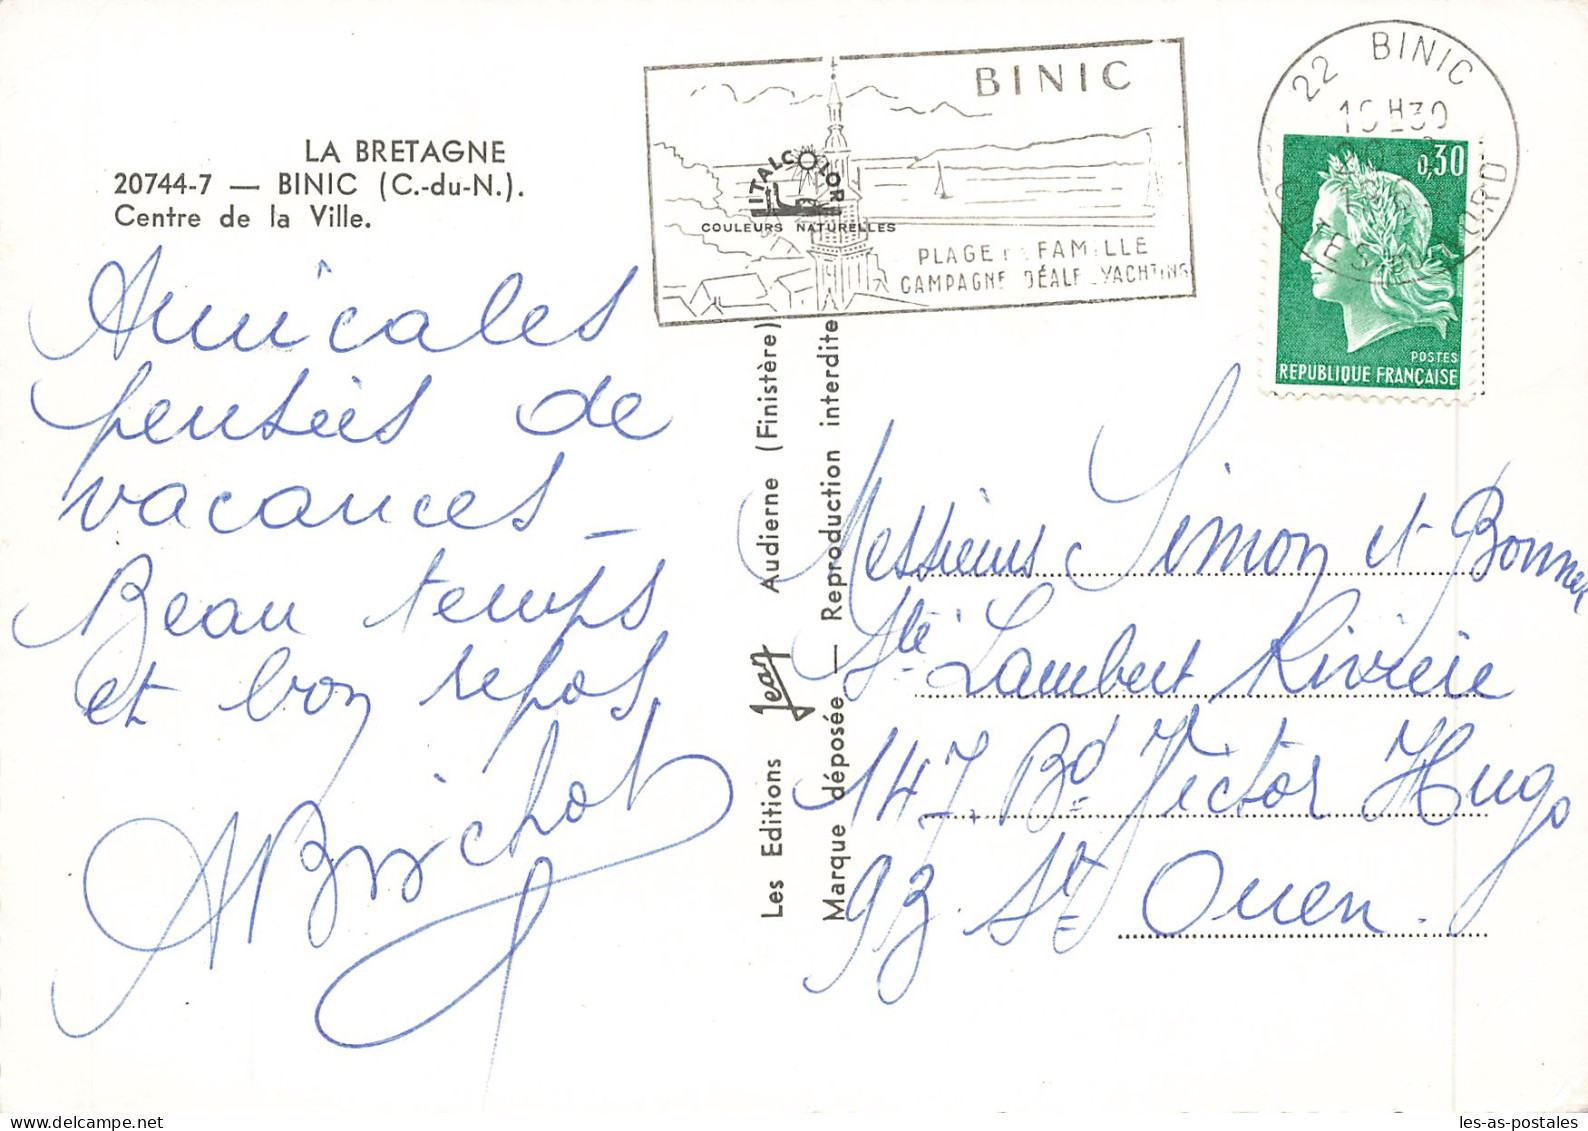 LA BRETAGNE
20744-7 — BINIC (C.-du-N.).
Centre de la Ville.
BINIC
ITALCOLOR
COULEURS NATURELLES
PLAGE FAMILLE
CAMPAGNE YACHTING
22 BINIC
0,30
POSTES
REPUBLIQUE FRANÇAISE
Amicales
pensées de
vacances _
Beau temps
et bon repos
ABrichot
Les Editions Jean Audierne (Finistère)
Marque déposée — Reproduction interdite
Messieurs Simon et Bonnet
Sté Lambert Rivière
147, Bd Victor Hugo
93. St Ouen.
les-as-postales